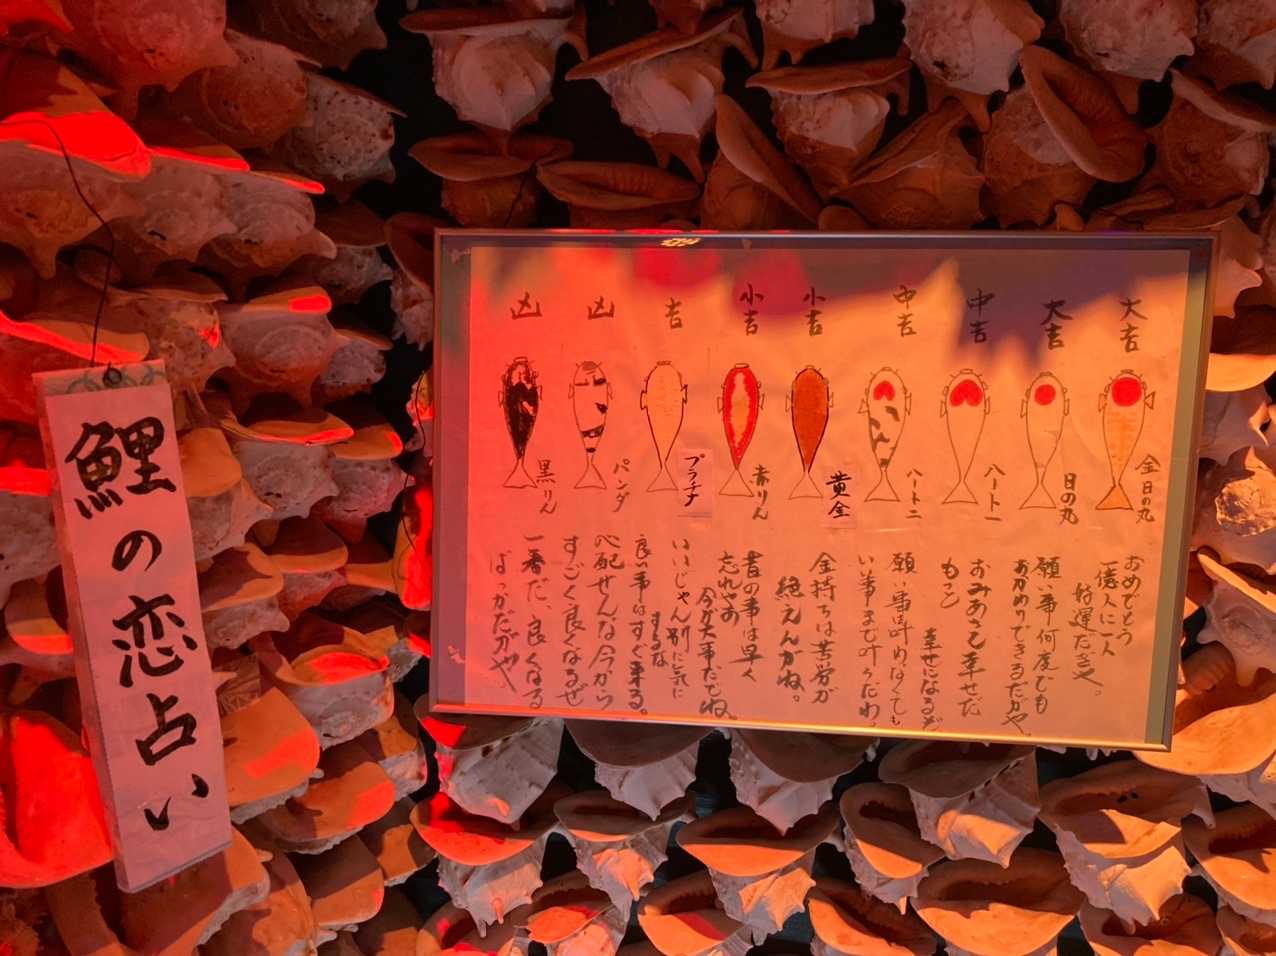 鯉の恋占い
大吉
大吉
中吉
中吉
小吉
小吉
吉
凶
凶
金日の丸
日の丸
ハート一
ハート二
黄金
赤りん
プラチナ
パンダ
黒りん
おめでとう
億人に一人
好運だぎゃ。
願い事何度でも
できるだがや
幸せだ
もン
幸せになるぞ
願い事は叶わなくても
い事まで叶うたわ。
金持ちは苦労が
絶えんがね。
昔の事は早く
忘れてよ
今が大事だでね。
いいじゃん別に気に
するな
良い事はすぐ来る。
心配せんな今から
すごく良くなるぜ
一番だ、良くなる
ばっかだがや。